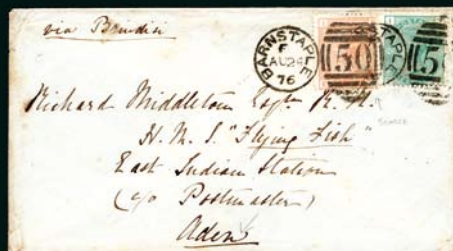 via Brindisi
BARNSTAPLE
F
AU 24
76
50
STAPLE
5
Richard Middleton Esqre R. N.
H. M. S. "Flying Fish"
East Indian Station
(c/o Postmaster)
Aden